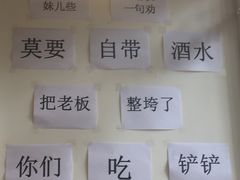 妹儿些 一句劝
莫要 自带 酒水
把老板 整垮了
你们 吃 铲铲